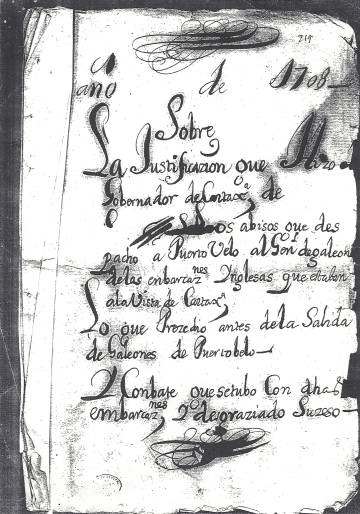 719
año de 1708
Sobre
La Justificazion que Hizo
Governador de Cartaxª, de
Los abisos que des
pacho a Puerto Velo al Gon de galeon
de las embarcaznes Inglesas que estaban
a la Vista de Cartaxª
Lo que Prozedio antes de la Salida
de Galeones de Puertobelo
Y Conbate que se tubo Con dhas
embarcaznes, Y desgraziado Suzeso